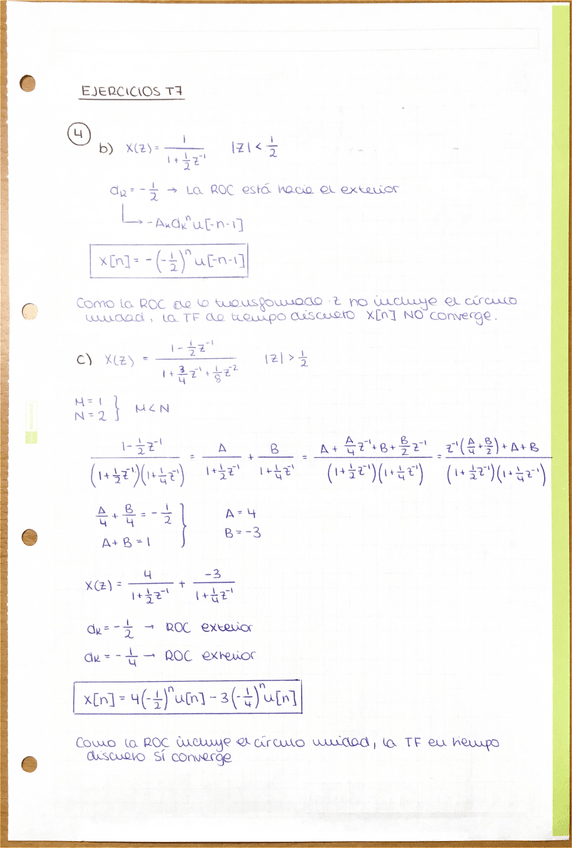 EJERCICIOS T7
4
b) X(z) = 1 / (1 + 1/2 z⁻¹)   |z| < 1/2
dk = -1/2 → La ROC está hacia el exterior
-Ak dkⁿ u[-n-1]
x[n] = -(-1/2)ⁿ u[-n-1]
Como la ROC de la transformada z no incluye el círculo
unidad, la TF de tiempo discreto x[n] NO converge.
c) X(z) = (1 - 1/2 z⁻¹) / (1 + 3/4 z⁻¹ + 1/8 z⁻²)   |z| > 1/2
M = 1
N = 2 } M < N
(1 - 1/2 z⁻¹) / ((1 + 1/2 z⁻¹)(1 + 1/4 z⁻¹)) = A / (1 + 1/2 z⁻¹) + B / (1 + 1/4 z⁻¹) = (A + A/4 z⁻¹ + B + B/2 z⁻¹) / ((1 + 1/2 z⁻¹)(1 + 1/4 z⁻¹)) = (z⁻¹(A/4 + B/2) + A + B) / ((1 + 1/2 z⁻¹)(1 + 1/4 z⁻¹))
A/4 + B/4 = -1/2   A = 4
A + B = 1   B = -3
X(z) = 4 / (1 + 1/2 z⁻¹) + -3 / (1 + 1/4 z⁻¹)
dk = -1/2 → ROC exterior
dk = -1/4 → ROC exterior
x[n] = 4(-1/2)ⁿ u[n] - 3(-1/4)ⁿ u[n]
Como la ROC incluye el círculo unidad, la TF en tiempo
discreto SÍ converge